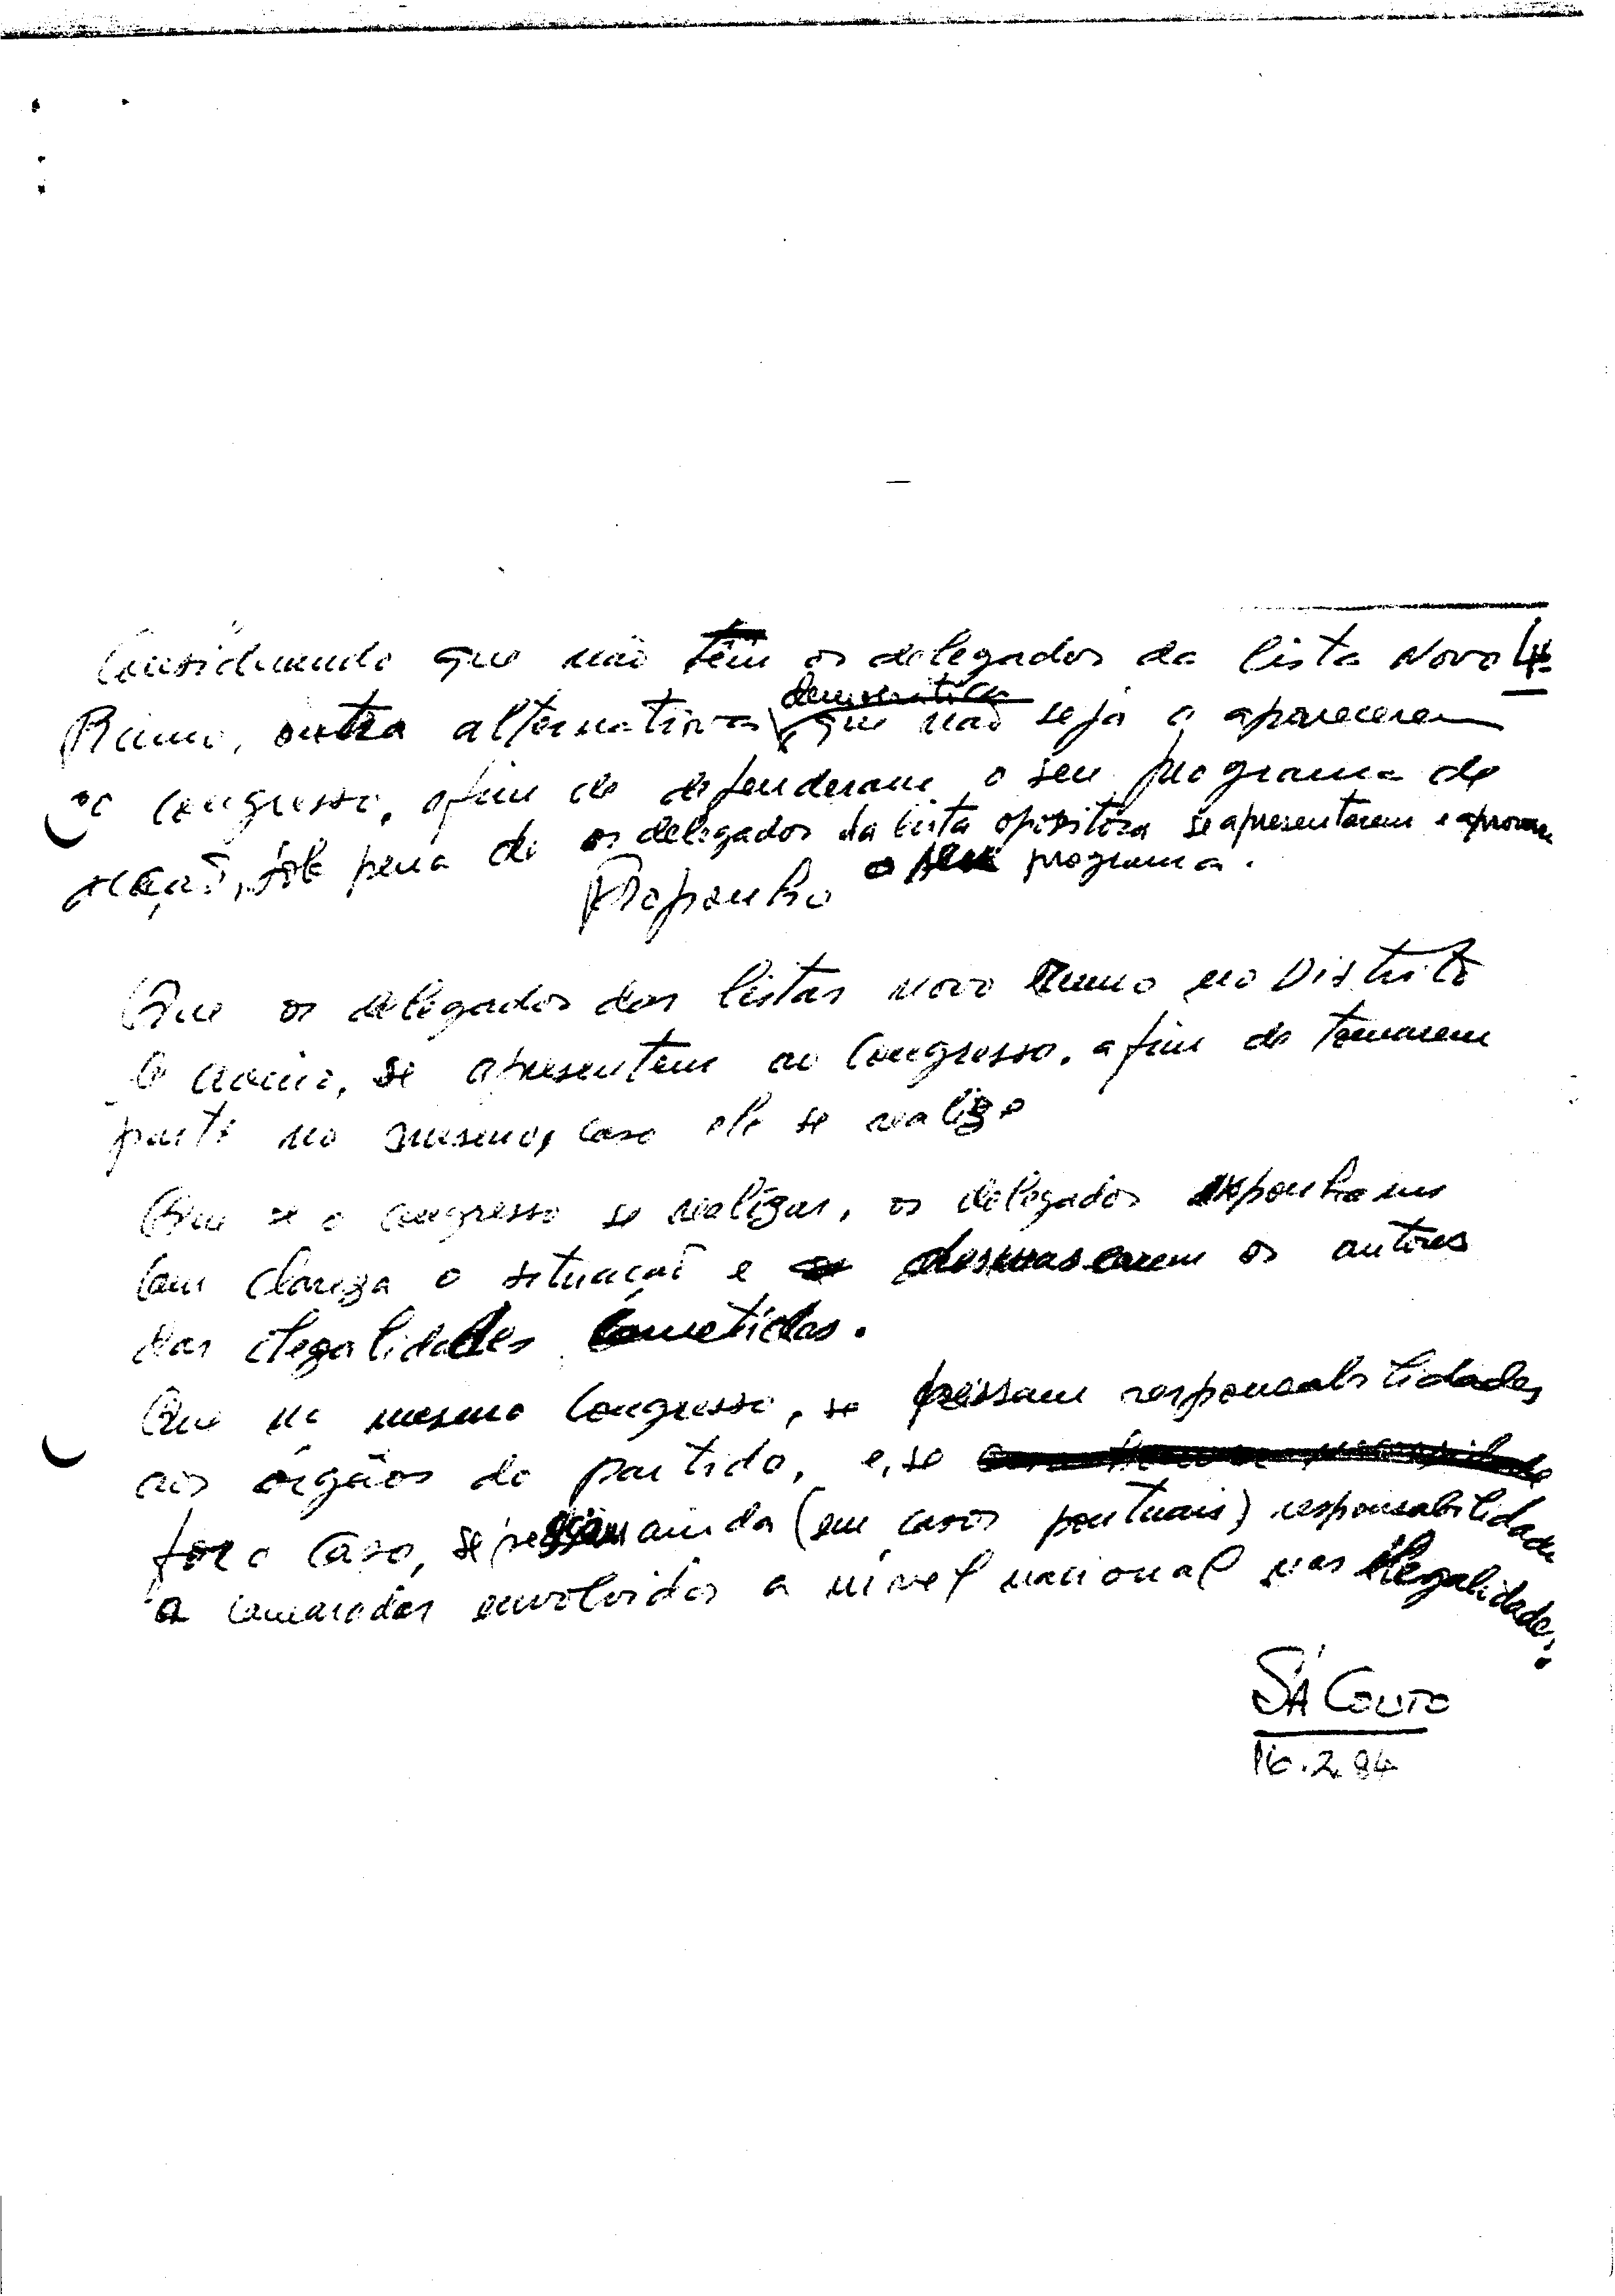 4.
Considerando que não têm os delegados da lista Novo
democrática
Rumo, outra alternativa, que não seja o aparecerem
ao congresso, afim de defenderem o seu programa de
acção, sob pena de os delegados da lista opositora se apresentarem e aprovarem
Proponho o seu programa.
Que os delegados das listas novo Rumo no Distrito
se apresentem ao Congresso, afim de tomarem
parte no mesmo, caso ele se realize
Que se o congresso se realizar, os delegados exponham
com clareza a situação e desmascarem os autores
das ilegalidades cometidas.
Que no mesmo Congresso, se peçam responsabilidades
aos órgãos do partido, e, se
for o caso, se peçam ainda (em casos pontuais) responsabilidades
a camaradas envolvidos a nível nacional nas ilegalidades.
SÁ COUTO
16.2.84